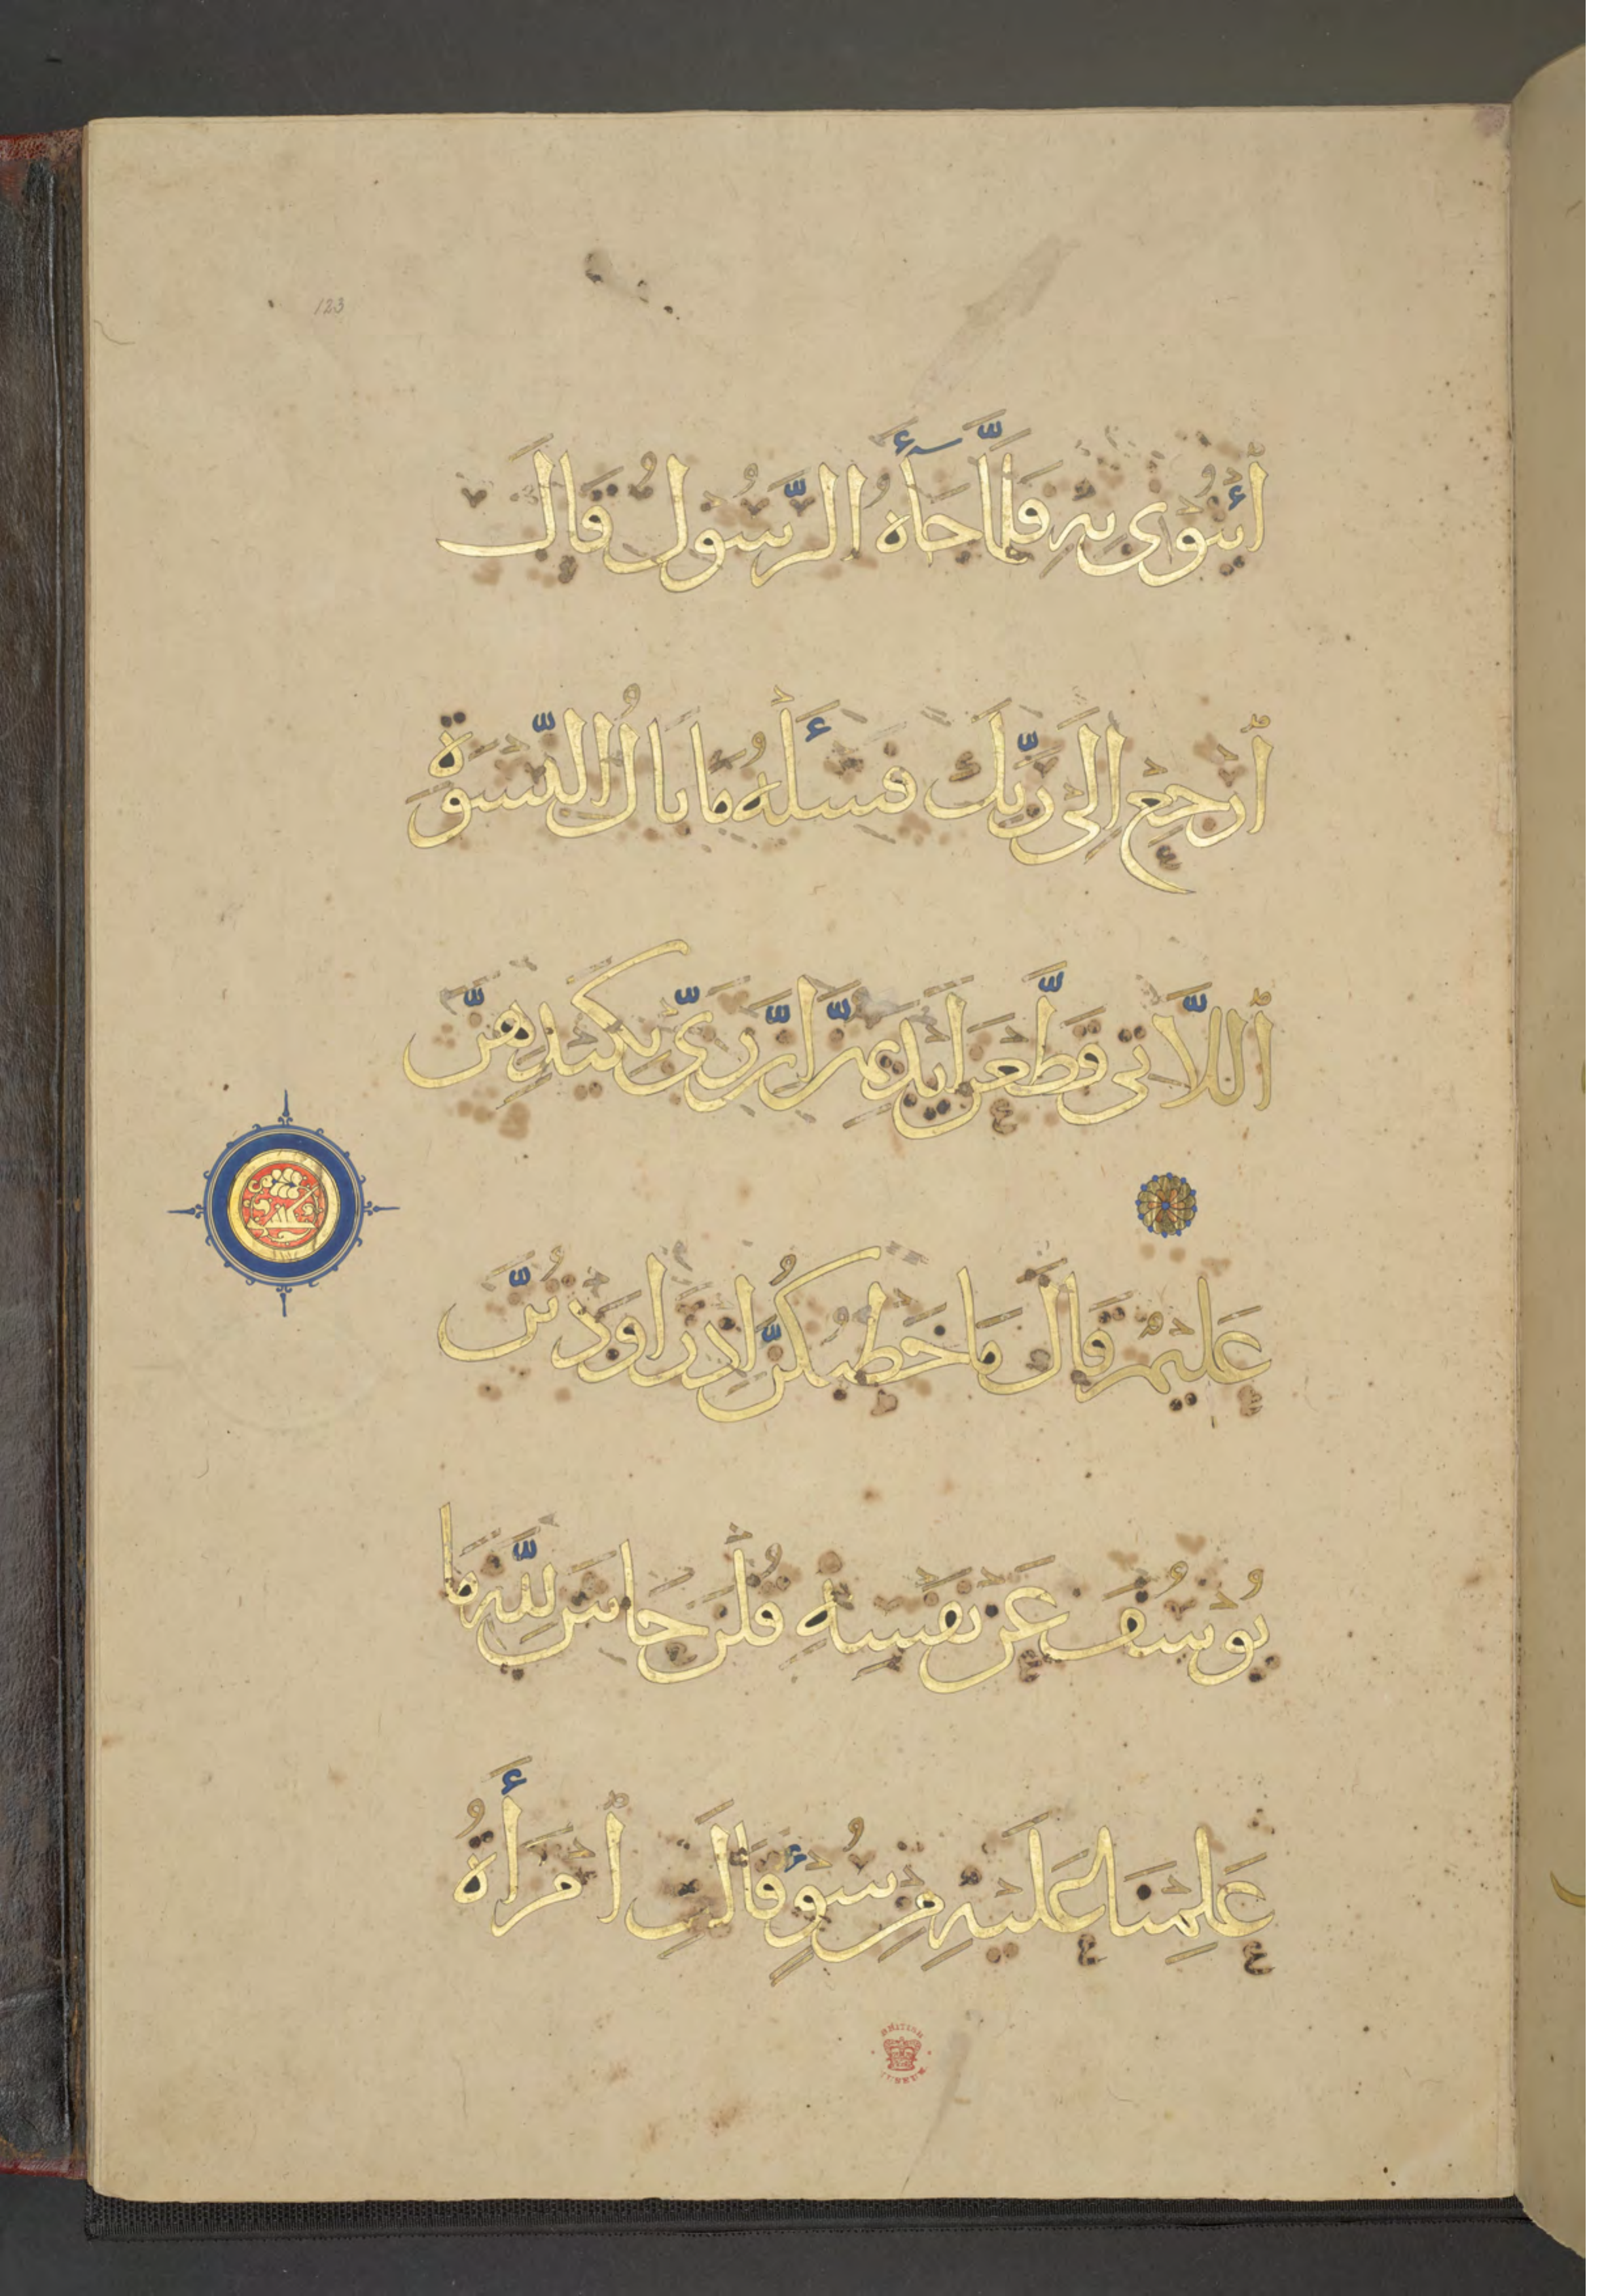 123
ٱئْتُونِى بِهِ فَلَمَّا جَآءَهُ الرَّسُولُ قَالَ
ٱرْجِعْ إِلَى رَبِّكَ فَسْـَٔلْهُ مَا بَالُ النِّسْوَةِ
ٱللَّاتِى قَطَّعْنَ أَيْدِيَهُنَّ إِنَّ رَبِّى بِكَيْدِهِنَّ
عَلِيمٌ قَالَ مَا خَطْبُكُنَّ إِذْ رَاوَدْتُنَّ
يُوسُفَ عَنْ نَفْسِهِ قُلْنَ حَاشَ لِلَّهِ مَا
عَلِمْنَا عَلَيْهِ مِنْ سُوءٍ قَالَتِ ٱمْرَأَةُ
BRITISH MUSEUM